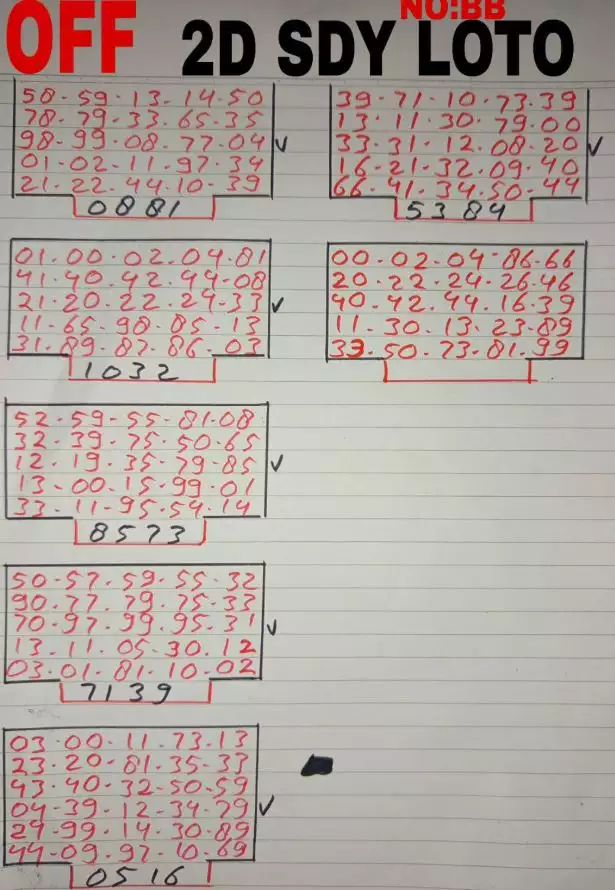 NO:BB
OFF 2D SDY LOTO
58-59-13-14-50
78-79-33-65-35
98-99-08-77-04
01-02-11-97-34
21-22-44-10-39
0881
01.00.02.04.81
41.40.42.44.08
21.20.22.24.33
11-65-98-85-13
31.89.87.86.03
1032
52-59-55-81-08
32-39-75-50-65
12.19.35-79-85
13-00-15-99-01
33-11-95-54-14
8573
50-57-59-55-32
90.77.79.75-33
70-97.99.95.31
13-11.05.30.12
03.01.81.10.02
7139
03-00-11-73-13
23-20-81-35-33
43-40-32-50-59
04-39-12-34-79
24-99-14-30-89
44-09-97-10-69
0516
39-71-10-73-39
13-11-30-79-00
33-31-12-08-20
16-21-32-09-40
66-41-34-50-44
5384
00-02-04-86-66
20-22-24-26-46
40-42-44-16-39
11-30-13-23-89
33-50-73-81-99